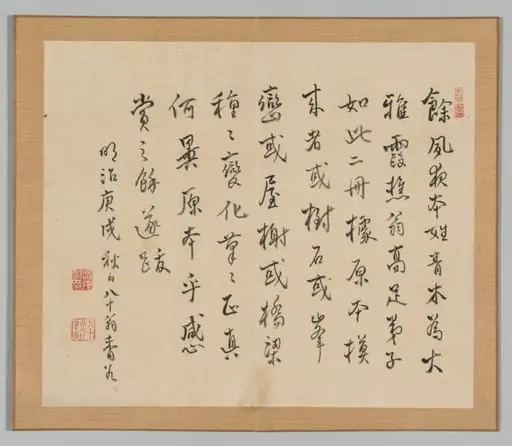 餘夙夜本姓青木為大
雅霞樵翁高足弟子
如此二冊據原本模
来者或樹石或峯
巒或屋榭或橋梁
種々變化筆々正真
何異原本乎感
賞之餘遂跋
明治庚戌秋日八十翁